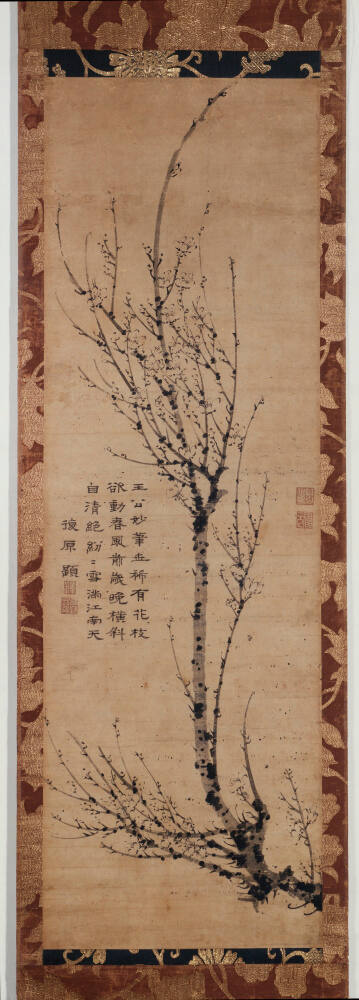 王公妙筆世稀有花枝
欲動春風前歲晚橫斜
自清絶紛〻雪滿江南天
復原顯